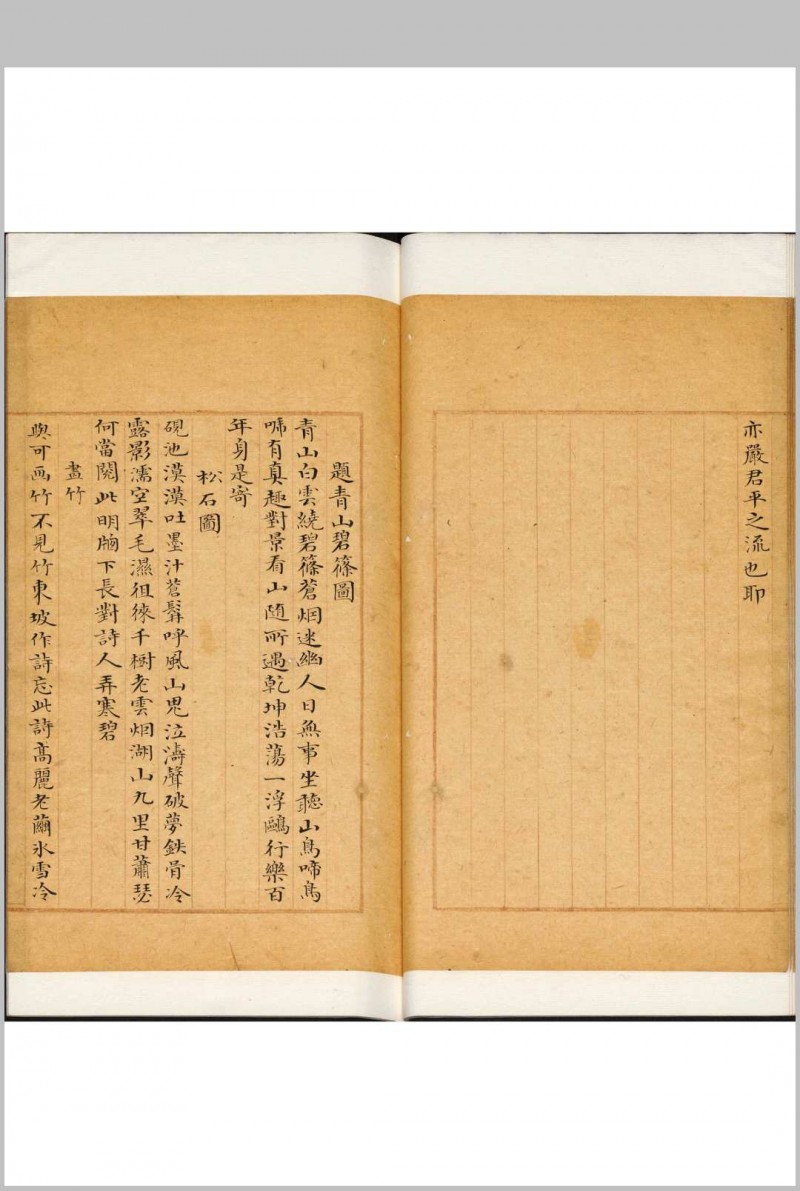 亦嚴君平之流也耶
題青山碧篠圖
青山白雲繞碧篠蒼烟迷幽人日無事坐聽山鳥啼鳥
啼有真趣對景看山随所遇乾坤浩蕩一浮鷗行樂百
年身是寄
松石圖
硯池漠漠吐墨汁蒼髯呼風山鬼泣濤聲破夢鉄骨冷
露影濡空翠毛濕徂徠千樹老雲烟湖山九里甘蕭瑟
何當閱此明牎下長對詩人弄寒碧
畫竹
與可画竹不見竹東坡作詩忘此詩高麗老繭氷雪冷